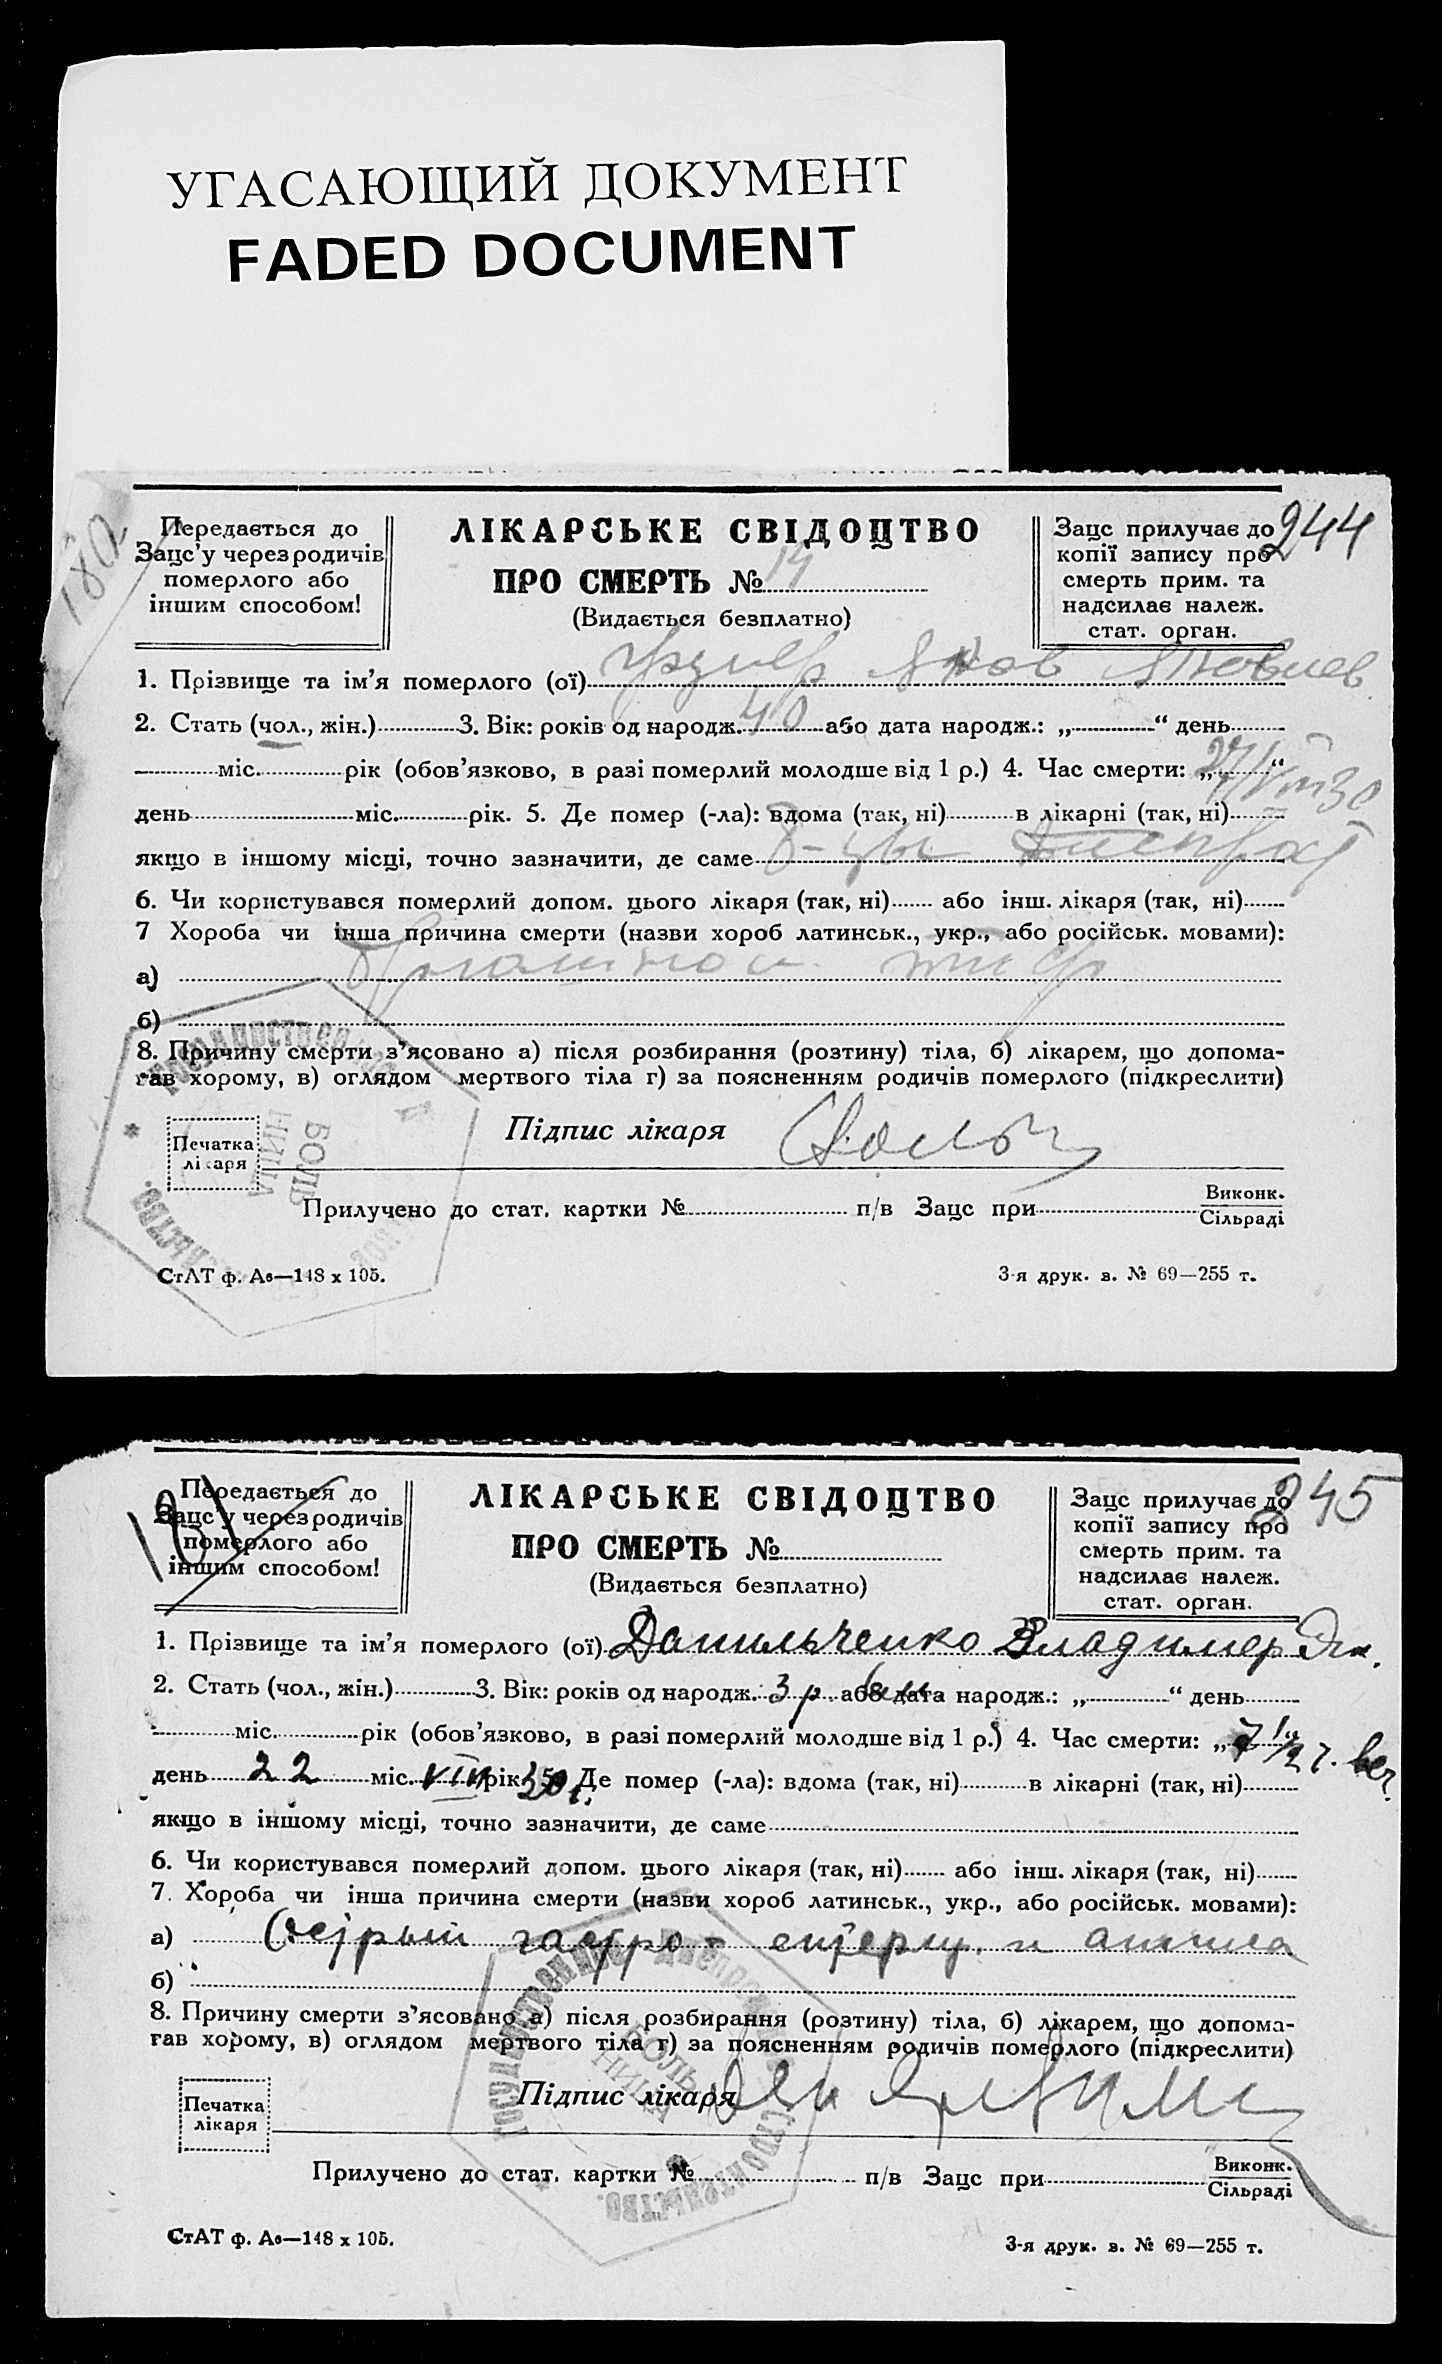 УГАСАЮЩИЙ ДОКУМЕНТ
FADED DOCUMENT
180
Передається до
Зацс'у через родичів
померлого або
іншим способом!
ЛІКАРСЬКЕ СВІДОЦТВО
ПРО СМЕРТЬ № 14
(Видається безплатно)
Зацс прилучає до
копії запису про
смерть прим. та
надсилає належ.
стат. орган.
244
1. Прізвище та ім'я померлого (ої) Яков Яковлев
2. Стать (чол., жін.) 3. Вік: років од народж. 40 або дата народж.: „ “ день
міс. рік (обов'язково, в разі померлий молодше від 1 р.) 4. Час смерти: „ “
день міс. рік. 5. Де помер (-ла): вдома (так, ні) в лікарні (так, ні)
якщо в іншому місці, точно зазначити, де саме
6. Чи користувався померлий допом. цього лікаря (так, ні) або інш. лікаря (так, ні)
7 Хороба чи інша причина смерти (назви хороб латинськ., укр., або російськ. мовами):
а) Брюшной тиф
б)
8. Причину смерти з'ясовано а) після розбирання (розтину) тіла, б) лікарем, що допома-
гав хорому, в) оглядом мертвого тіла г) за поясненням родичів померлого (підкреслити)
Печатка
лікаря
Підпис лікаря
Прилучено до стат. картки № п/в Зацс при Виконк.
Сільраді
СтАТ ф. Ав—148 х 105.
3-я друк. з. № 69—255 т.
БОЛЬ
НИЦА
181
Передається до
Зацс'у через родичів
померлого або
іншим способом!
ЛІКАРСЬКЕ СВІДОЦТВО
ПРО СМЕРТЬ №
(Видається безплатно)
Зацс прилучає до
копії запису про
смерть прим. та
надсилає належ.
стат. орган.
245
1. Прізвище та ім'я померлого (ої) Данильченко Владимер
2. Стать (чол., жін.) 3. Вік: років од народж. 3 р. або дата народж.: „ “ день
міс. рік (обов'язково, в разі померлий молодше від 1 р.) 4. Час смерти: „7 1/2 г. веч.
день 22 міс. VIII рік 30 г. 5. Де помер (-ла): вдома (так, ні) в лікарні (так, ні)
якщо в іншому місці, точно зазначити, де саме
6. Чи користувався померлий допом. цього лікаря (так, ні) або інш. лікаря (так, ні)
7. Хороба чи інша причина смерти (назви хороб латинськ., укр., або російськ. мовами):
а) Острый гастро-энтерит. и ангина
б)
8. Причину смерти з'ясовано а) після розбирання (розтину) тіла, б) лікарем, що допома-
гав хорому, в) оглядом мертвого тіла г) за поясненням родичів померлого (підкреслити)
Печатка
лікаря
Підпис лікаря
Прилучено до стат. картки № п/в Зацс при Виконк.
Сільраді
СтАТ ф. Ав—148 х 105.
3-я друк. з. № 69—255 т.
БОЛЬ
НИЦА